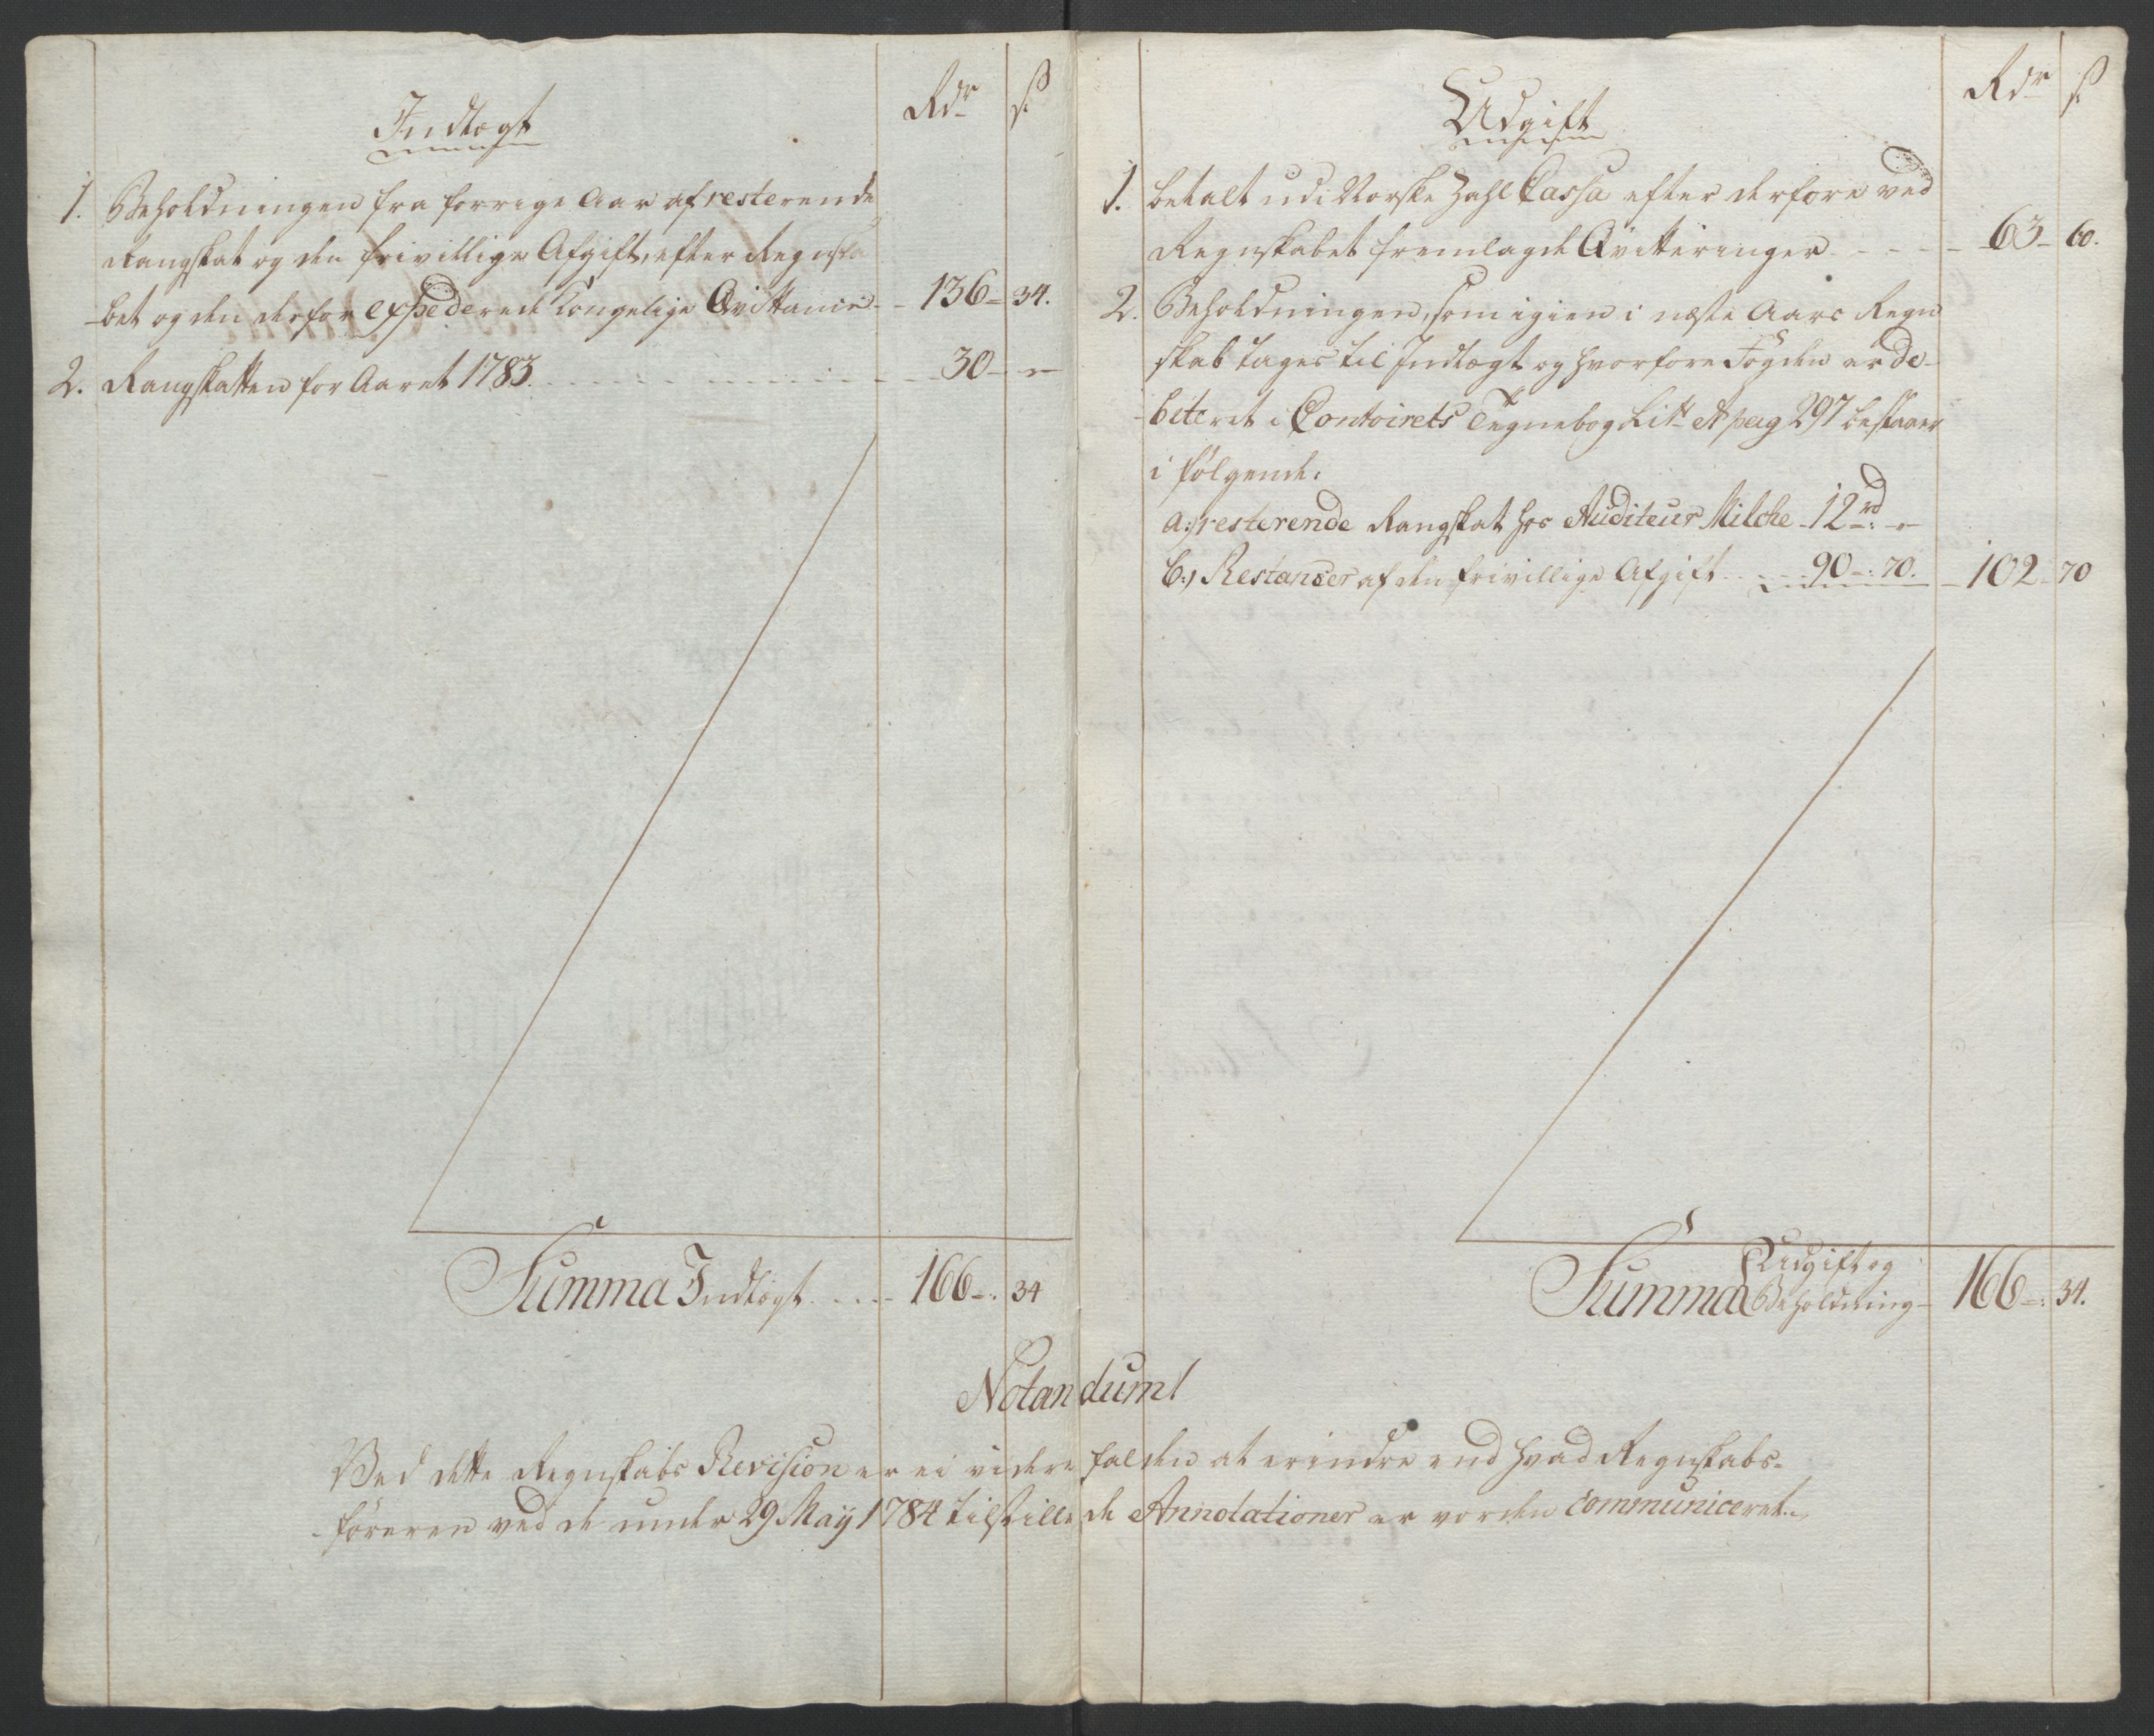 Indtægt
Rdr ß
1. Beholdningen fra forrige Aar af resterende
Rangskat og den frivillige Afgift, efter Regnska
bet og den derfor expederede Kongelige Qvittance - 136 - 34.
2. Rangskatten for Aaret 1783. - 30 - "
Summa Indtægt - 166 -: 34
Udgift
Rdr ß
1. betalt udi Norske Zahl Cassa efter derfore ved
Regnskabet fremlagde Qvitteringer - 63 - 60.
2. Beholdningen, som igien i næste Aars Regn
skab tages til Indtægt og hvorfore Fogden er de-
biteret i Contoirets Tegnebog Litr A pag 297 bestaaer
i følgende:
a:) resterende Rangskat hos Auditeur Milche - 12 rd: "
b:) Restancer af den frivillige Afgift - 90 -: 70. - 102 - 70
Summa Udgift og
Beholdning - 166 -: 34.
Notandum!
Ved dette Regnskabs Revision er ei videre falden at erindre end hvad Regnskabs-
føreren ved de under 29 Maij 1784 tilstillede Annotationer er vorden communiceret.